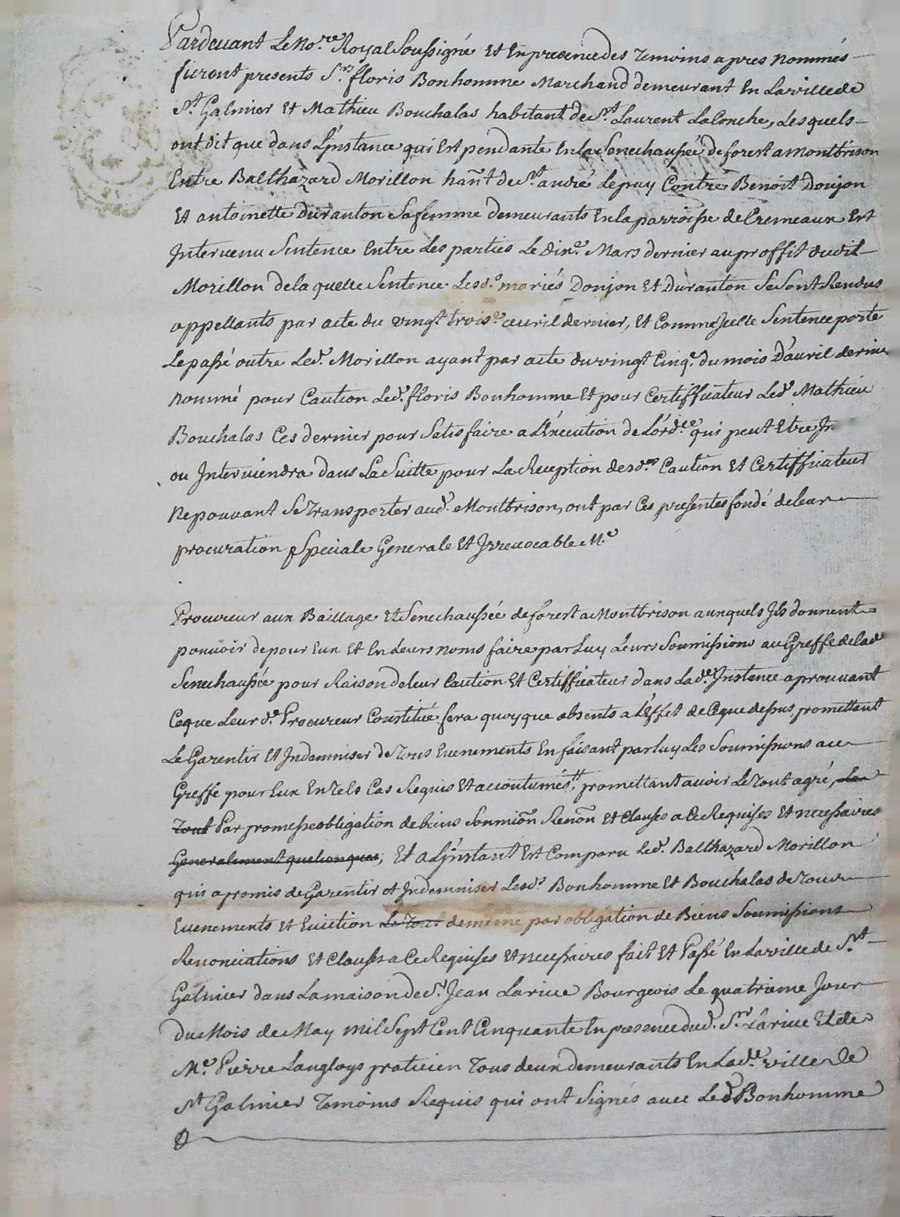 Pardevant Le No.re Royal Soussigné Et En presence des Temoins apres nommés
furent presents S.r floris Bonhomme Marchand demeurant En La ville de
S.t Galmier Et Mathieu Bouchalas habitant de S.t Laurent La Conche, Lesquels
ont dit que dans L'jnstance qui Est pendante En la Senechaussée de forest a Montbrison
Entre Balthazard Morillon han̄t de S.t andré Le puy Contre Benoit Donjon
Et antoinette duranton Sa femme demeurants En la parroisse de Cremeaux Est
Intervenu Sentence Entre Les parties Le dix.e Mars dernier au proffit dudit
Morillon de la quelle Sentence Lesd.s mariés Donjon Et Duranton Se Sont Rendus
appellants par acte du vingt trois.e avril dernier, Et Comme jcelle Sentence porte
Le passé outre Led. Morillon ayant par acte du vingt Cinq.e du mois D'avril dernier
nommé pour Caution Led. floris Bonhomme Et pour Certifficateur Led. Mathieu
Bouchalas Ces dernier pour Satisfaire a L'Execution de L'ord.ce qui peut Etre Jn
ou Interviendra dans La Suitte pour La Reception desd.es Caution Et Certifficateur
Ne pouvant Se transporter aud. Montbrison, ont par Ces presentes fondé de leur
procuration Speciale Generale Et Jrrevocable M.e
Procureur aux Baillage Et Senechaussée de forest a Montbrison auxquels Jls donnent
pouvoir de pour Eux et En Leurs noms faire par Luy Leurs Soumissions au Greffe de lad.
Senechaussée pour Raison de leur Caution Et Certifficateur dans Lad.e Jnstence aprouvant
Ceque Leurd. Procureur Constitué fera quoyque absents a L'Effet de Ceque dessus promettant
Le Garentir Et Jndemniser de Tous Evenements En faisant par luy Les Soumissions au
Greffe pour Eux En Tels Cas Requis Et accoutumés, promettant avoir Le Tout agré, Le
Tout Par promesse obligation de biens Soumion̄ Renon̄ Et Clauses a Ce Requises Et necessaires
Generalement quelconques, Et a L'jnstant Est Comparu Led. Balthazard Morillon
qui a promis de Garentir et Jndemniser Lesd. Bonhomme Et Bouchalas de Tous
Evenements Et Eviction Le Tout de meme par obligation de Biens Soumissions
Renonciations Et Clauses a Ce Requises Et necessaires fait Et Passé En La ville de S.t
Galmier dans La maison de S.r Jean Larive Bourgeois Le quatrieme Jour
du Mois de May mil Sept Cent Cinquante En presence dud. S.r Larive Et de
M.e Pierre Langloys praticien Tous deux demeurants En Lad.e ville de
S.t Galmier Temoins Requis qui ont Signés avec Led. Bonhomme